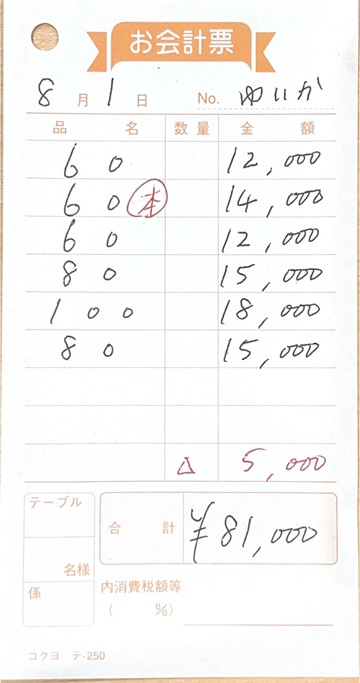 お会計票
8月1日 No. ゆいか
品名 数量 金額
60 12,000
60 本 14,000
60 12,000
80 15,000
100 18,000
80 15,000
△ 5,000
テーブル
名様
係
合計 ¥81,000
内消費税額等
( %)
コクヨ テ-250